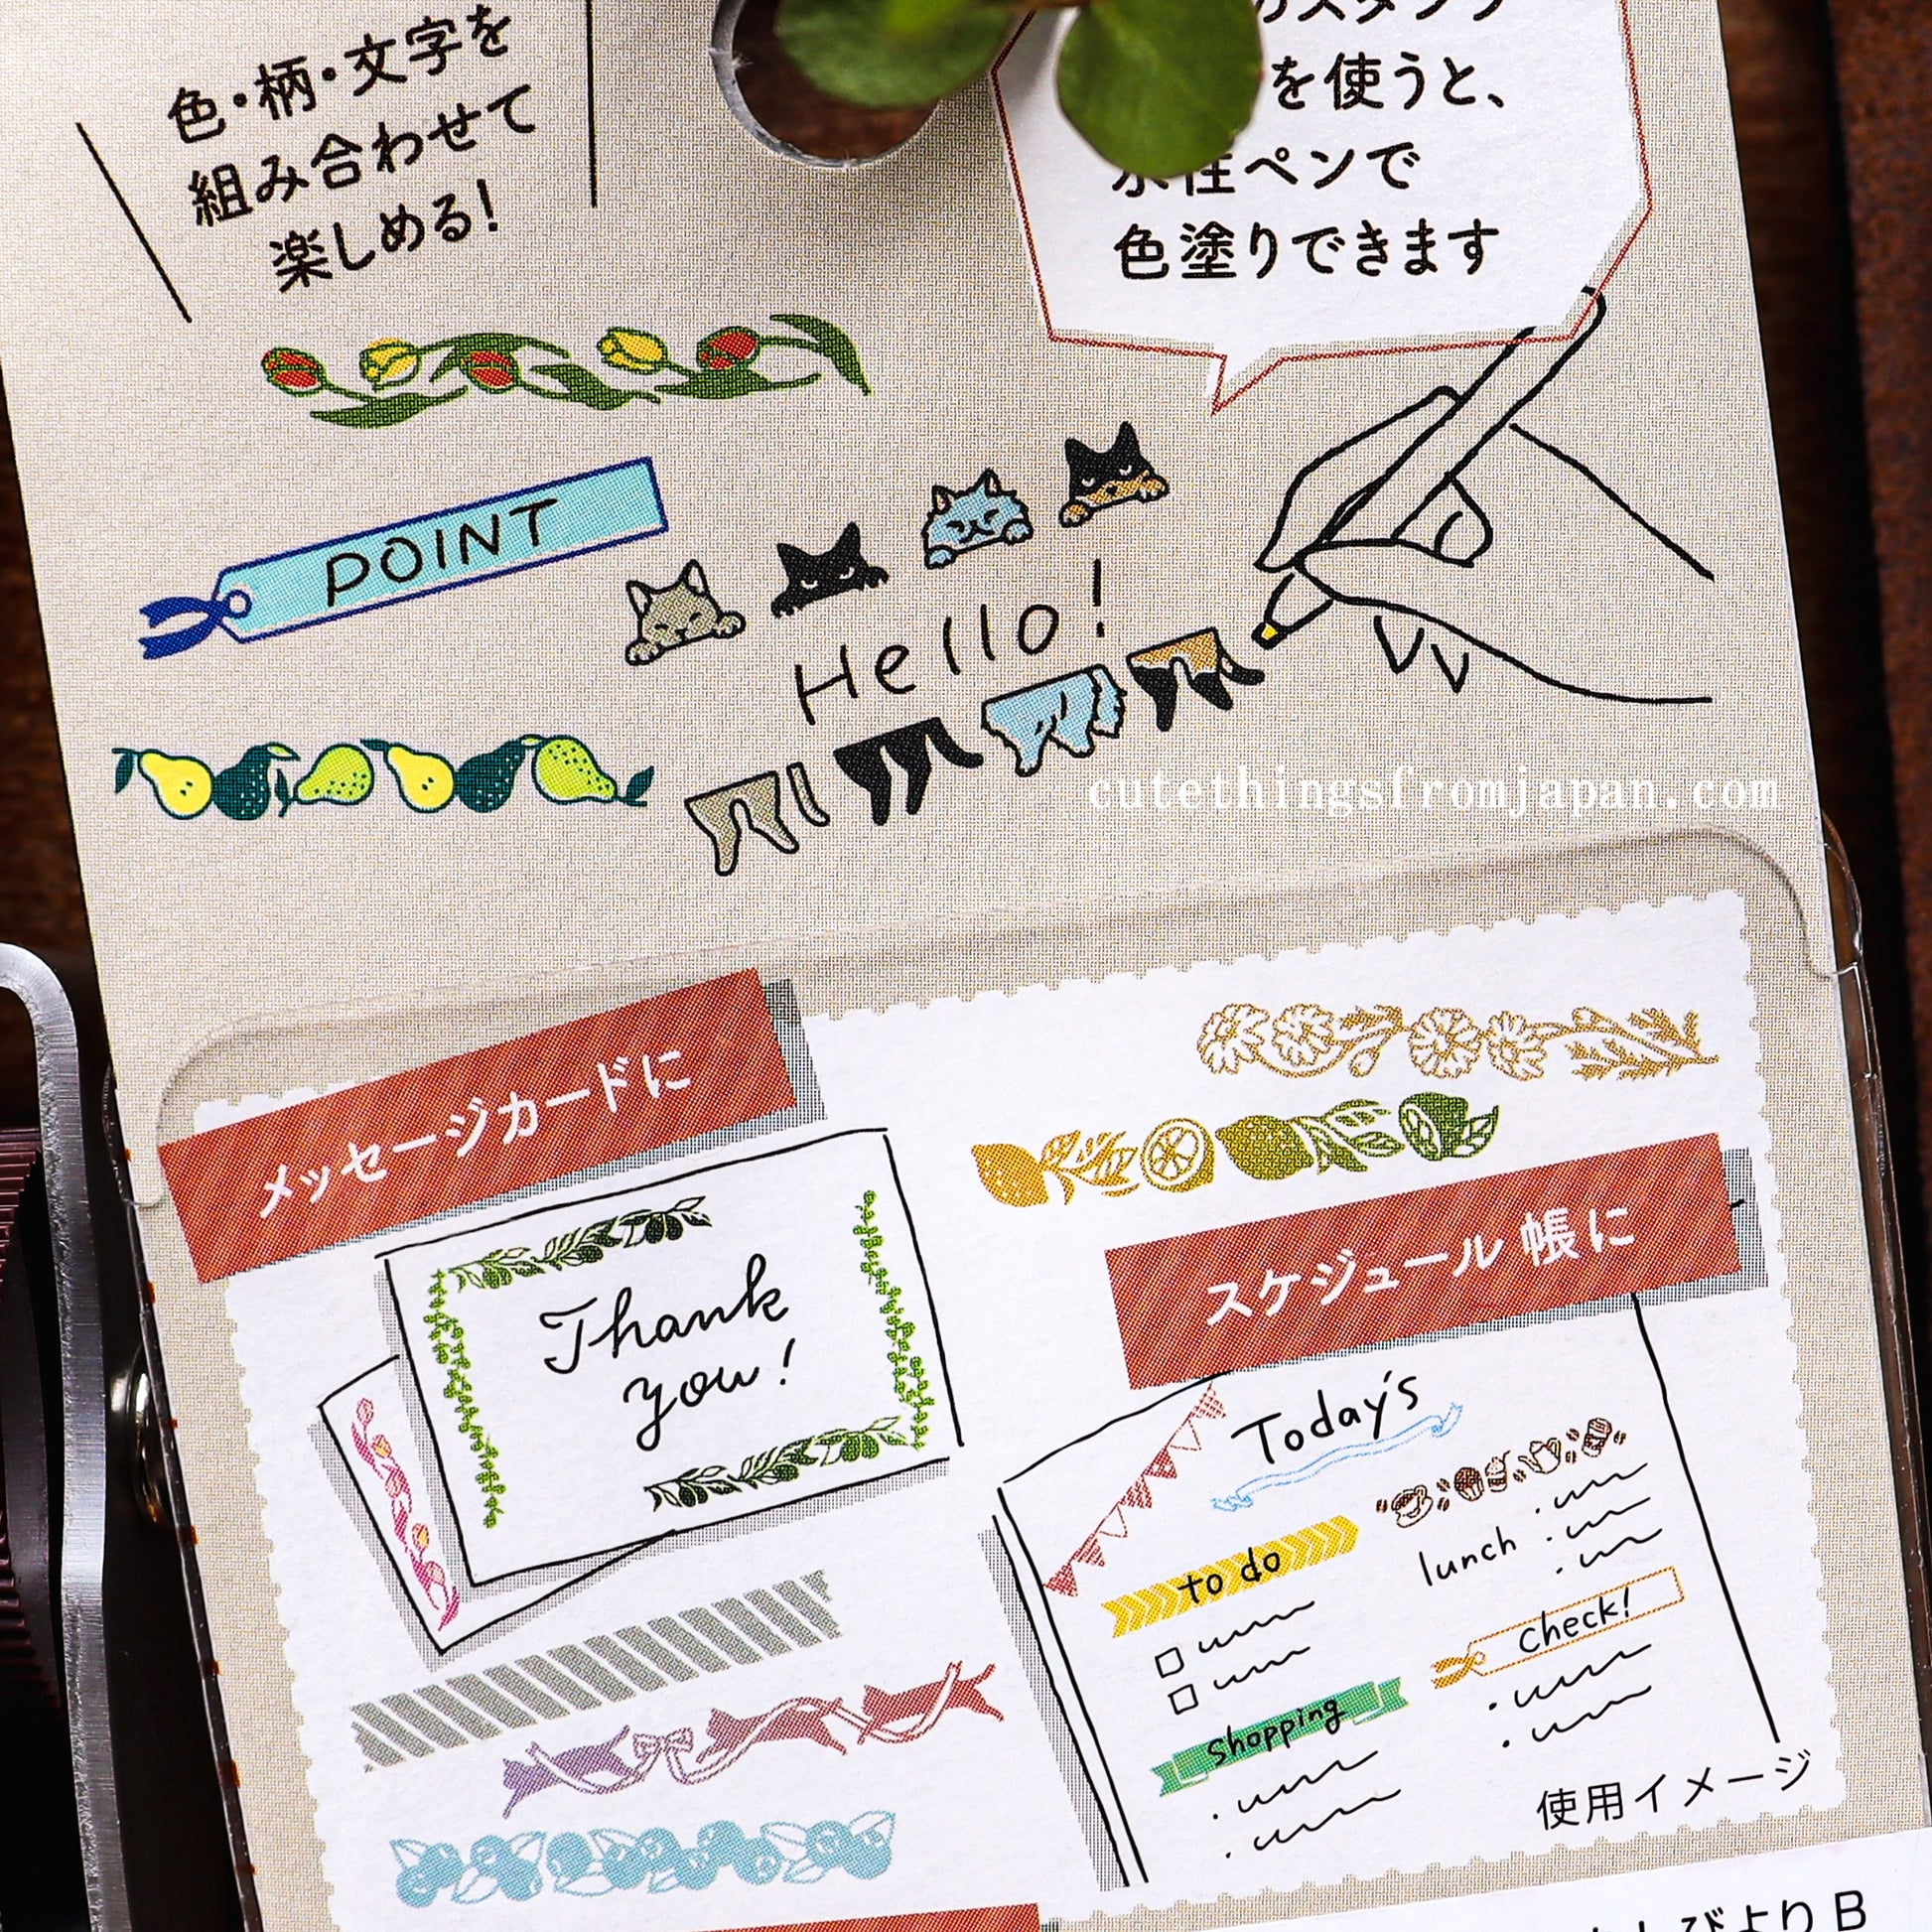 色・柄・文字を
組み合わせて
楽しめる!
のスタンプ
を使うと、
水性ペンで
色塗りできます
POINT
Hello!
cutethingsfromjapan.com
メッセージカードに
Thank
you!
スケジュール帳に
Today's
to do
lunch
check!
shopping
使用イメージ
びより B